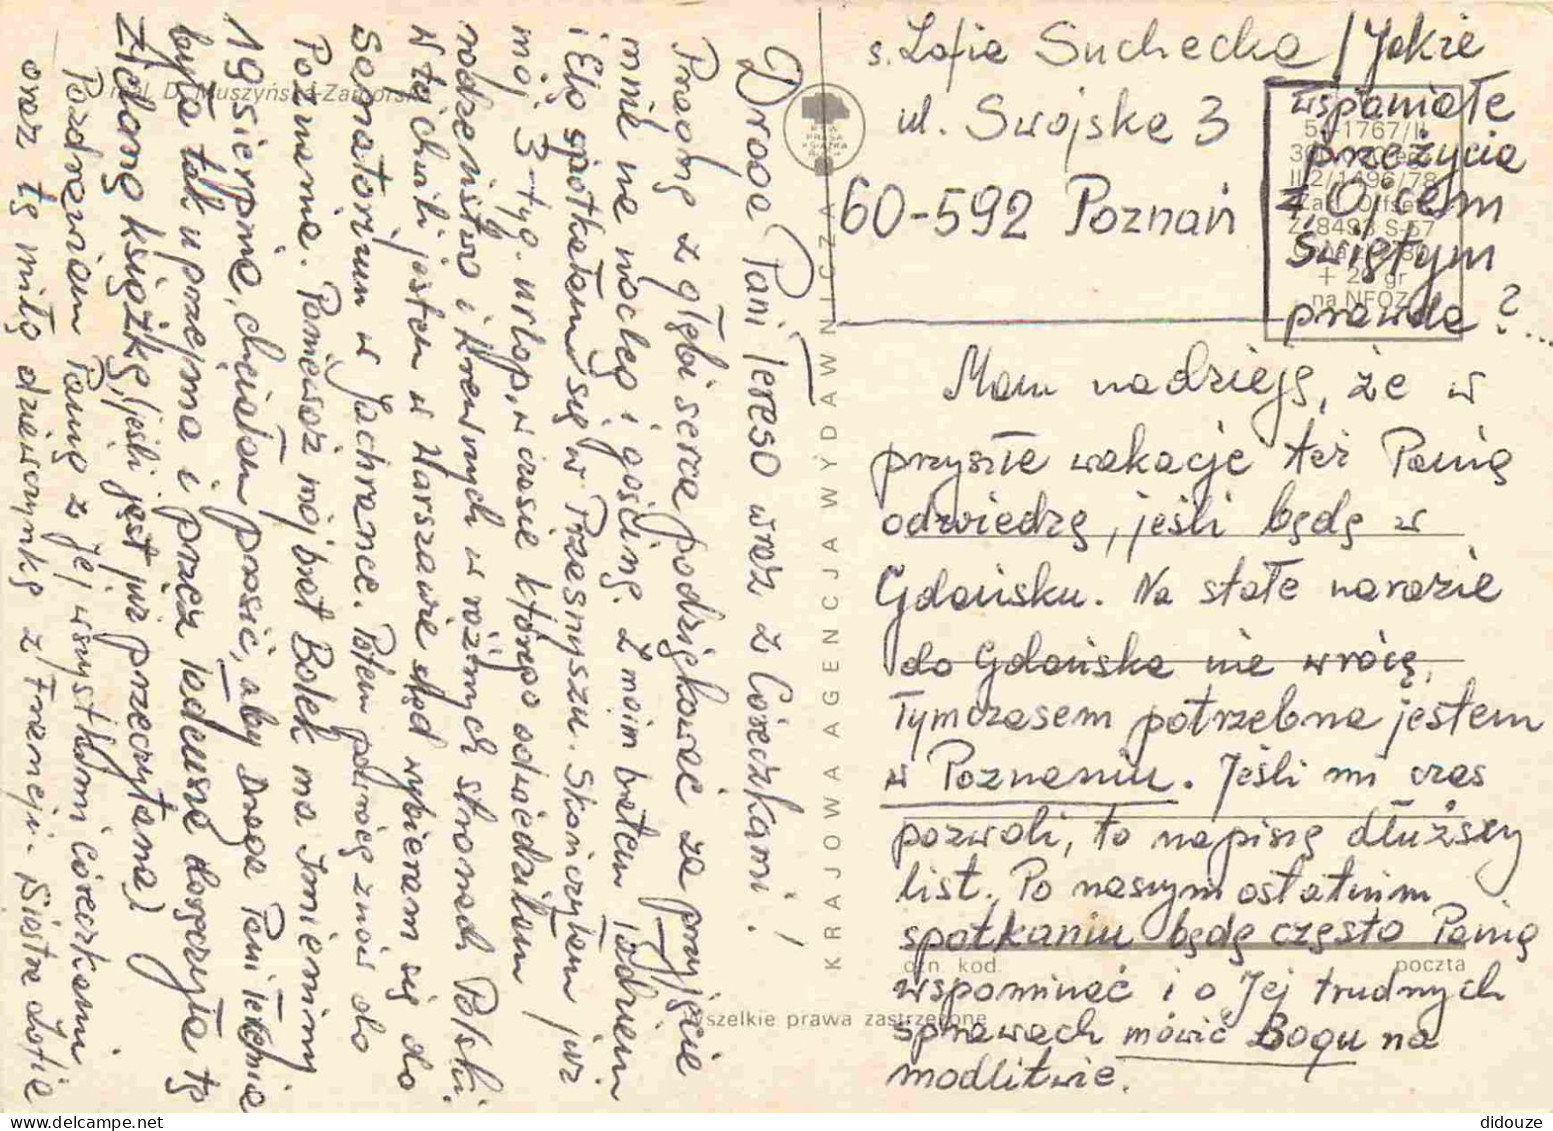 Droga Pani Tereso wraz z Córeczkami!
Pragnę z głębi serca podziękować za przyjęcie
mnie na nocleg i gościnę. Z moim bratem Tadziem
i Elą spotkałam się w Przasnyszu. Skończyłam już
mój 3-tyg. urlop, w czasie którego odwiedziłam
rodzeństwo i krewnych w różnych stronach Polski.
W tej chwili jestem w Warszawie skąd wybieram się do
Sanatorium w Jachrance. Potem powrócę znów do
Poznania. Ponieważ mój brat Bolek ma Imieniny
19 sierpnia, chciałam prosić, aby Droga Pani Terenia
była tak uprzejma i przez Tadeusza doręczyła tę
zieloną książkę, (jeśli jest już przeczytana)
Pozdrawiam Panią z Jej wszystkimi córeczkami
oraz tę miłą dziewczynkę z Francji. Siostra Zofia
mal. D. Muszyńska-Zamorska
KRAJOWA AGENCJA WYDAWNICZA
RSW
PRASA
KSIĄŻKA
RUCH
s. Zofia Suchecka
ul. Swojska 3
60-592 Poznań
/Jakie
wspaniałe
przeżycia
z Ojcem
Świętym
prawda?...
+ 2 gr
na NFOZ
Mam nadzieję, że w
przyszłe wakacje też Panią
odwiedzę, jeśli będę w
Gdańsku. Na stałe narazie
do Gdańska nie wrócę.
Tymczasem potrzebna jestem
w Poznaniu. Jeśli mi czas
pozwoli, to napiszę dłuższy
list. Po naszym ostatnim
spotkaniu będę często Panią
wspominać i o Jej trudnych
sprawach mówić Bogu na
modlitwie.
ozn. kod.
poczta
Wszelkie prawa zastrzeżone
didouze